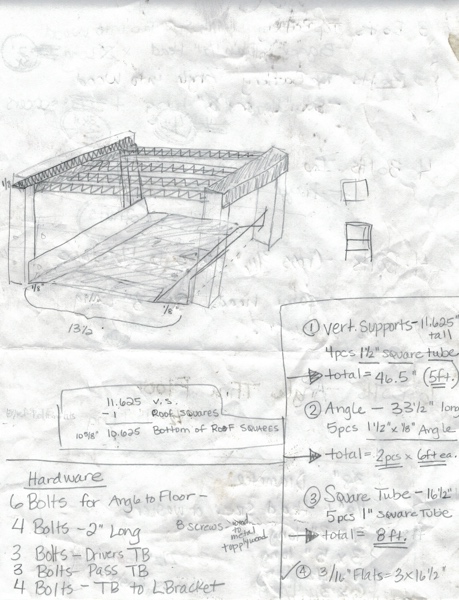 1/8
1/8"
13 1/2
1/8"
11.625 V.S.
-1 Roof squares
10 5/8" 10.625 Bottom of Roof Squares
① Vert. Supports - 11.625" tall
4pcs 1 1/2" square tube
total = 46.5" (5ft.)
② Angle - 33 1/2" long
5pcs 1 1/2" x 1/8" Angle
total = 2pcs x 6ft ea.
③ Square Tube - 16 1/2"
5pcs 1" square Tube
total = 8ft.
④ 3/16" Flats = 3 x 16 1/2
Hardware
6 Bolts for Angle to Floor -
4 Bolts - 2" Long
8 screws - wood
to
metal
+ plywood
3 Bolts - Drivers TB
3 Bolts - Pass TB
4 Bolts - TB to L Bracket